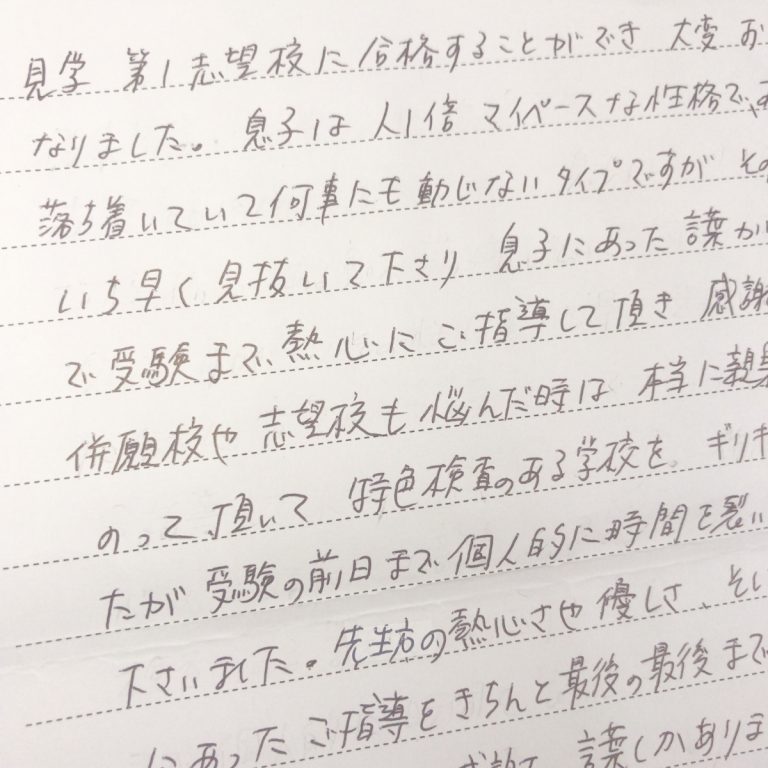 見学 第1志望校に合格することができ 大変 お
なりました。息子は 人1倍 マイペースな性格で、
落ち着いていて何事にも動じないタイプですが その
いち早く見抜いて下さり 息子にあった
で受験まで、熱心にご指導して頂き 感謝
併願校や 志望校も 悩んだ時は 本当に親
のって頂いて 特色検査のある学校を、ギリギ
たが 受験の前日まで個人的に時間を裂い
下さいました。先生方の熱心さや優しさ、そし
にあったご指導をきちんと最後の最後まで
しかありま